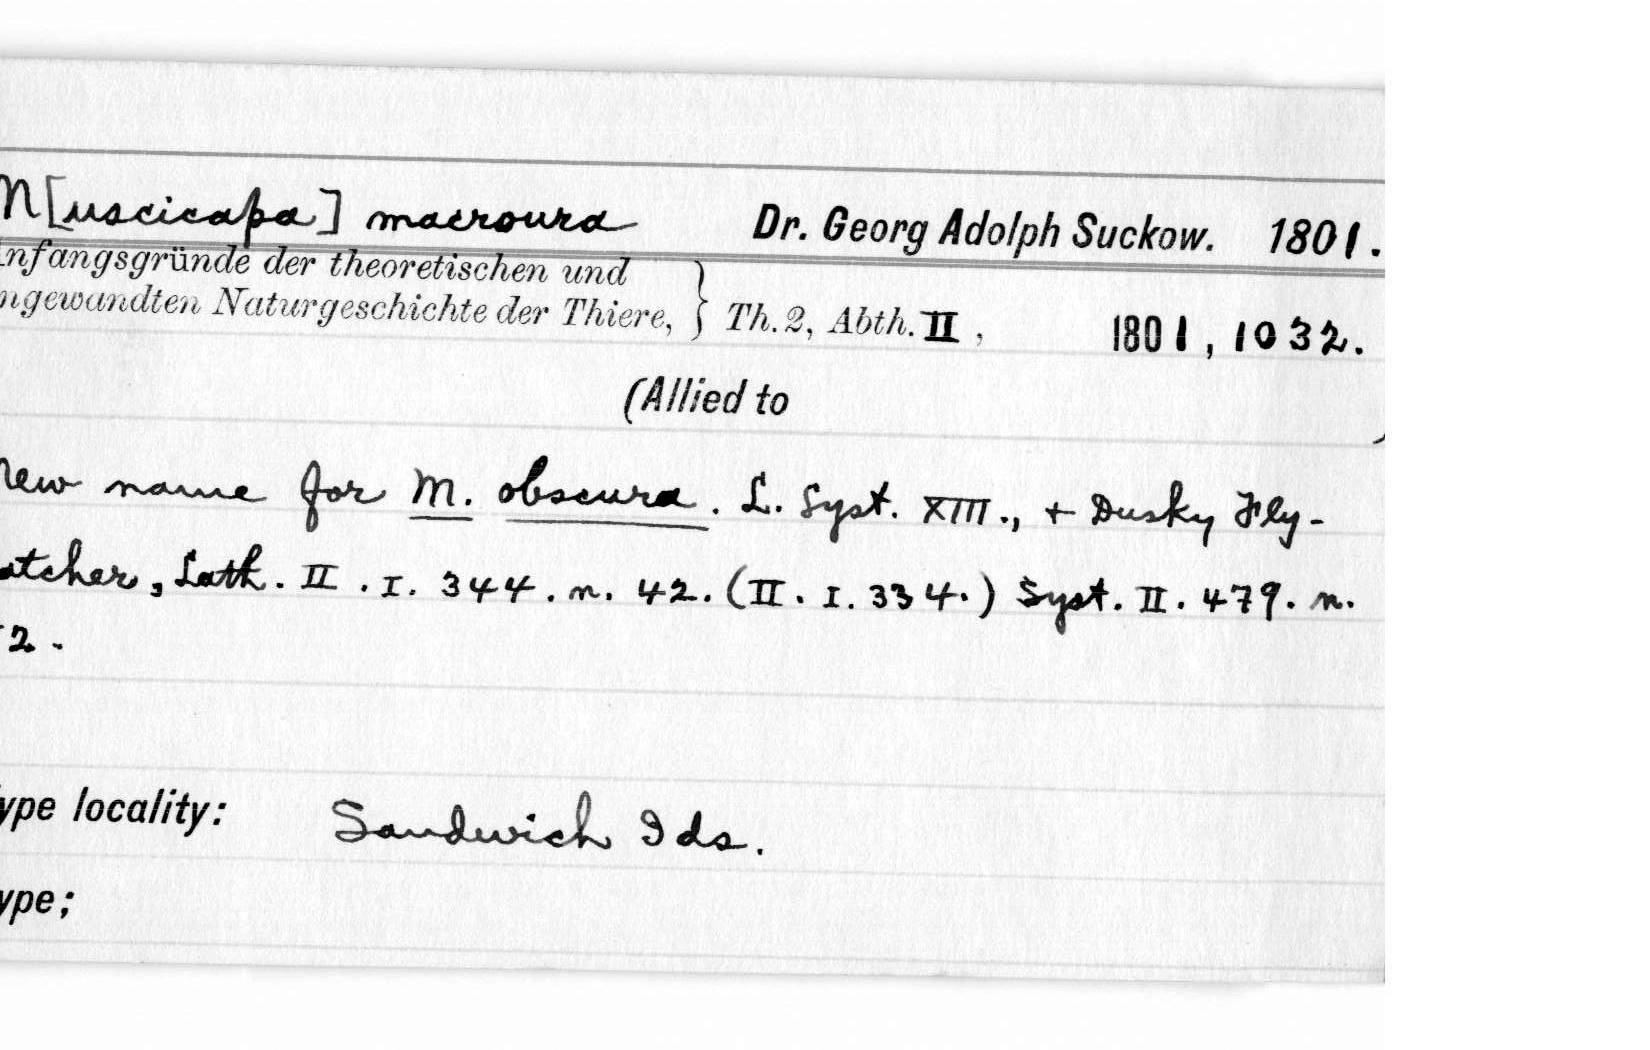 M[uscicapa] macroura Dr. Georg Adolph Suckow. 1801.
nfangsgründe der theoretischen und
ngewandten Naturgeschichte der Thiere, } Th. 2, Abth. II, 1801, 1032.
(Allied to )
New name for M. obscura. L. Syst. XIII., + Dusky Fly-
atcher, Lath. II. I. 344. n. 42. (II. I. 334.) Syst. II. 479. n.
2.
ype locality: Sandwich Ids.
ype;